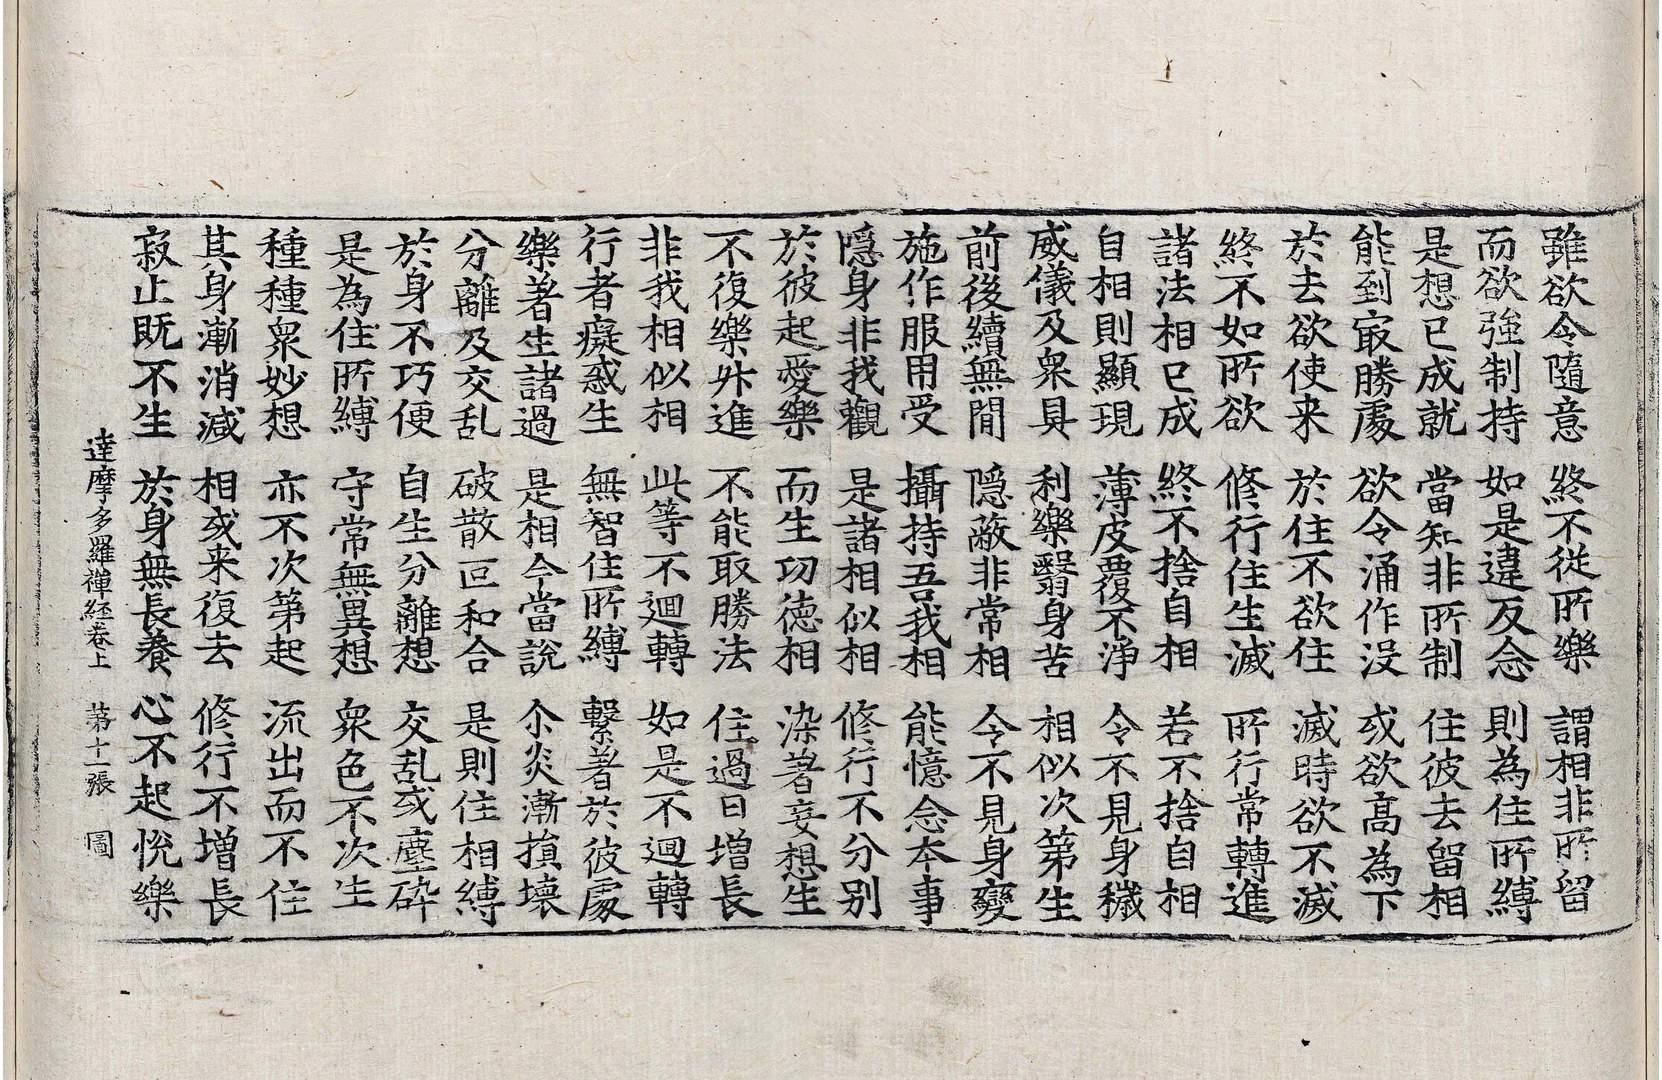 雖欲令隨意 終不從所樂 謂相非所留
而欲強制持 如是違反念 則為住所縛
是想已成就 當知非所制 住彼去留相
能到㝡勝處 欲令涌作没 或欲高為下
於去欲使来 於住不欲住 滅時欲不滅
終不如所欲 修行住生滅 所行常轉進
諸法相已成 終不捨自相 若不捨自相
自相則顯現 薄皮覆不淨 令不見身穢
威儀及衆具 利樂翳身苦 相似次第生
前後續無間 隱蔽非常相 令不見身變
施作服用受 攝持吾我相 能憶念本事
隱身非我觀 是諸相似相 修行不分别
於彼起愛樂 而生功德相 染著妄想生
不復樂升進 不能取勝法 住過日增長
非我相似相 此等不迴轉 如是不迴轉
行者癡惑生 無智住所縛 繫著於彼處
樂著生諸過 是相今當說 尒炎漸損壞
分離及交乱 破散叵和合 是則住相縛
於身不巧便 自生分離想 交乱或塵碎
是為住所縛 守常無異想 衆色不次生
種種衆妙想 亦不次第起 流出而不住
其身漸消減 相或来復去 修行不增長
寂止既不生 於身無長養 心不起悅樂
達摩多羅禪経卷上 第十一張 圖